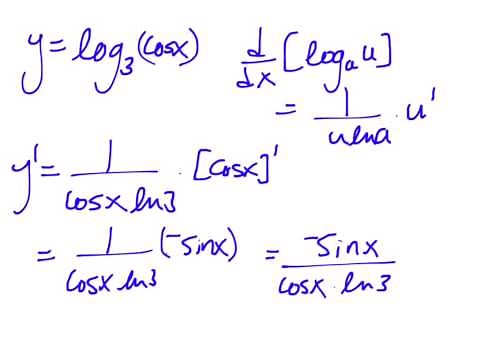 y = log₃(cosx)   d/dx [logₐu]
= 1/(u lna) · u'
y' = 1/(cosx ln3) · [cosx]'
= 1/(cosx ln3) (-sinx) = -sinx/(cosx · ln3)